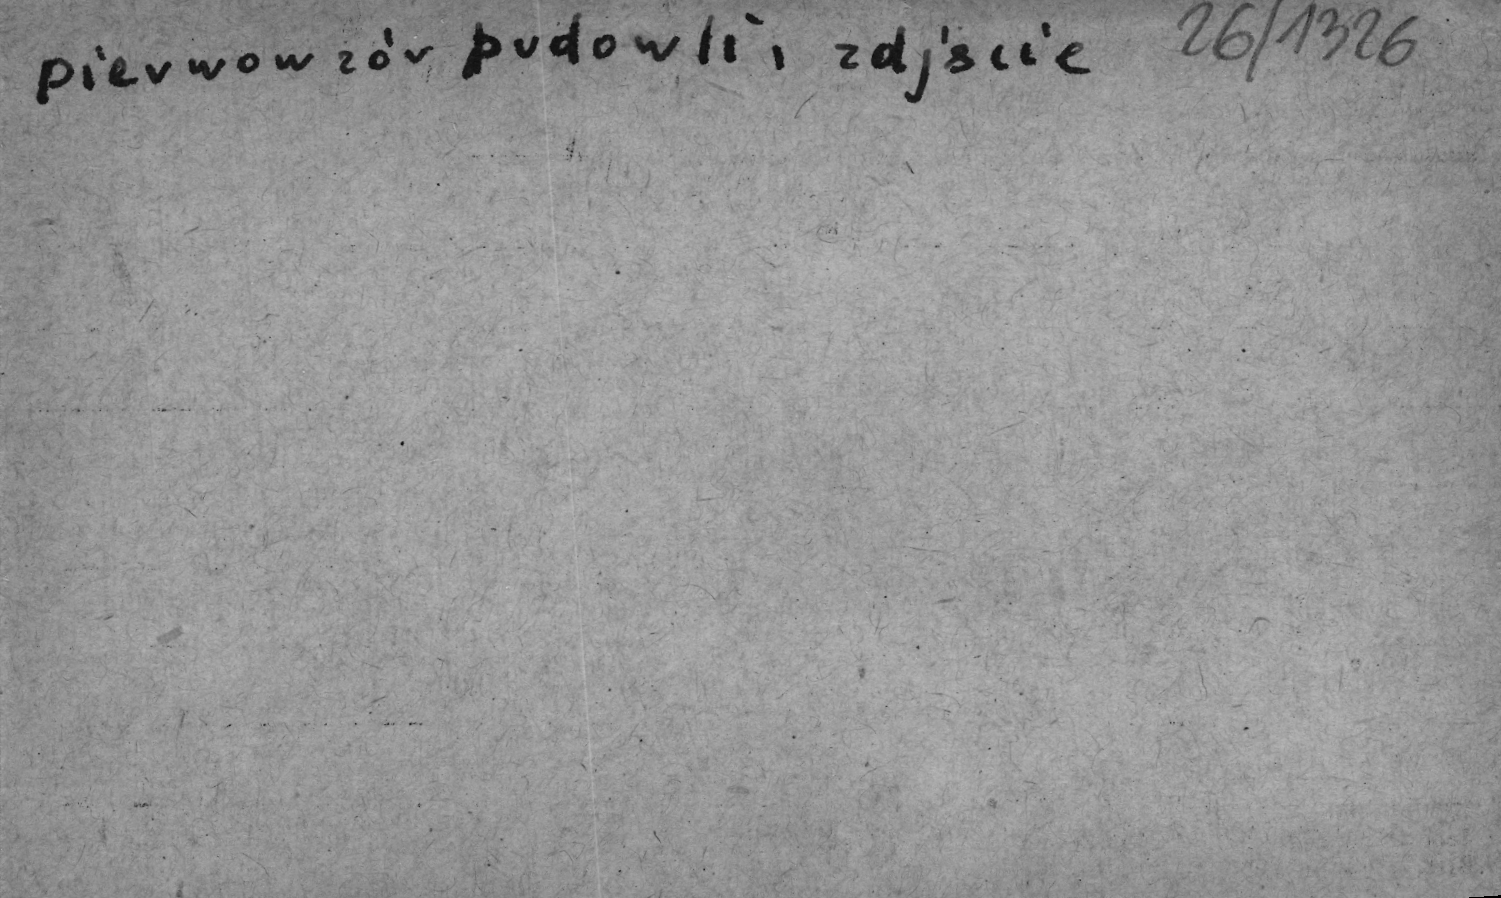 pierwowzór budowli i zdjście 26/1326